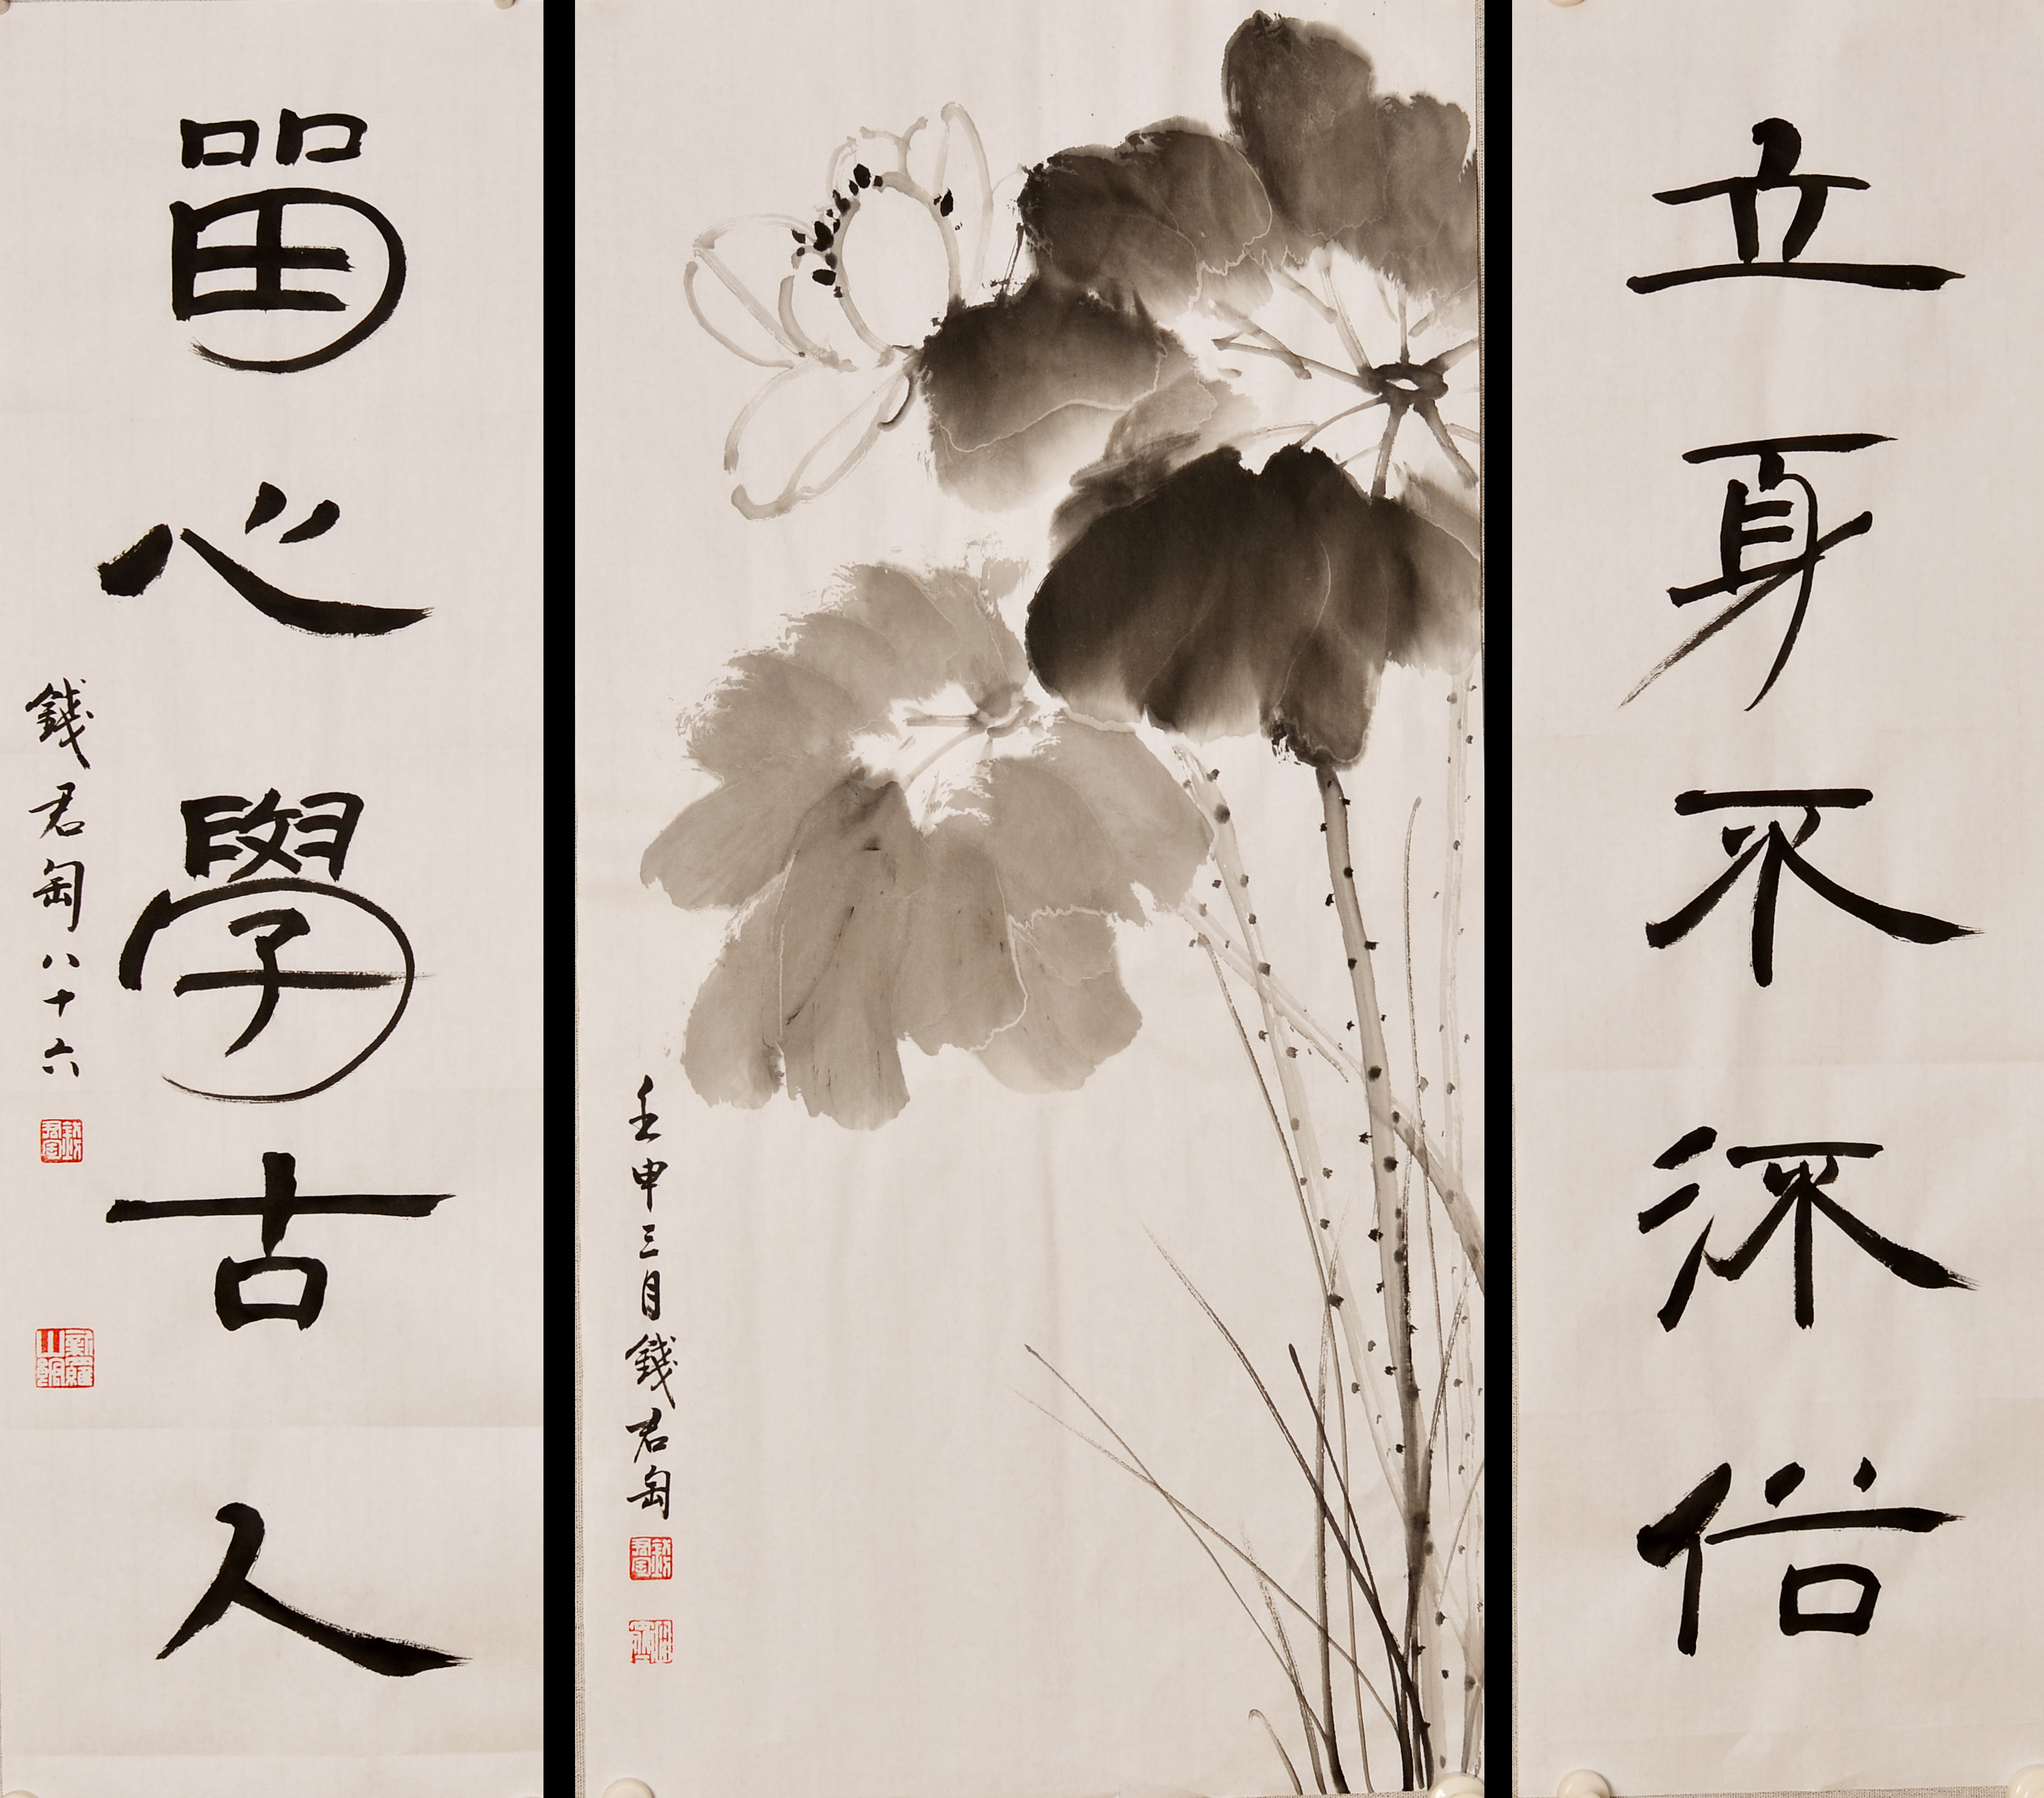 立身不流俗
壬申三月錢君匋
留心學古人
錢君匋八十六
新羅山館